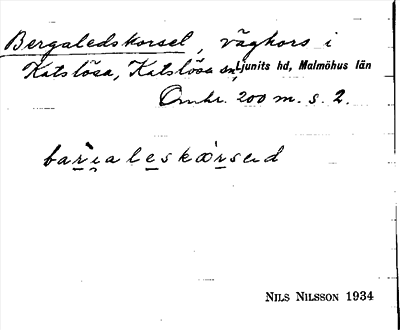 Bergaledskorsel, vägkors i
Katslösa, Katslösa sn, Ljunits hd, Malmöhus län
Omkr. 200 m. s. 2.
NILS NILSSON 1934